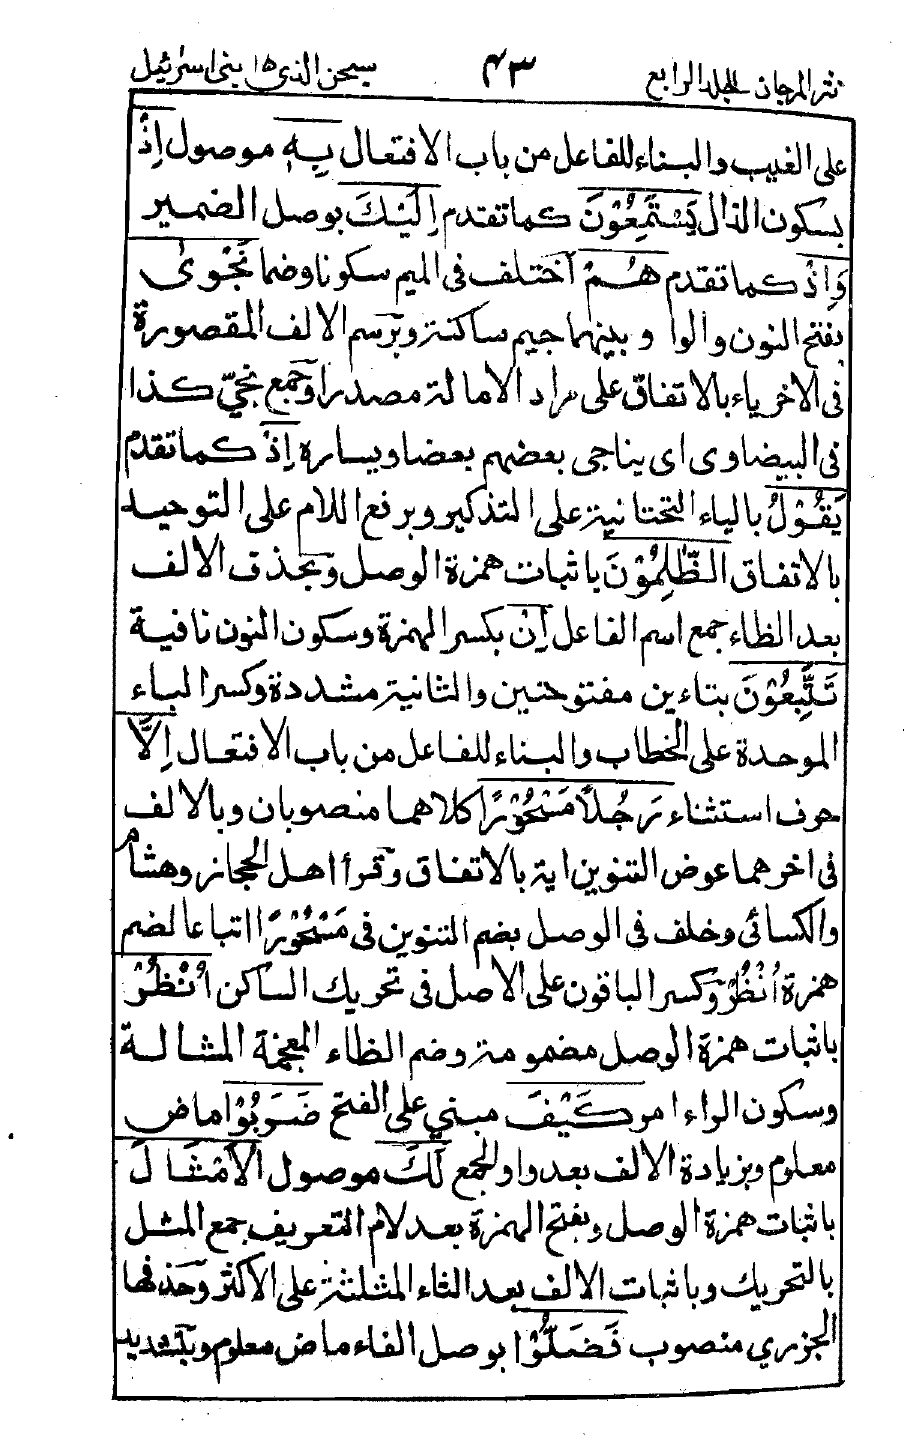 نثر المرجان الجلد الرابع ٤٣ سبحن الذى ١٥ بنى اسرئيل
على الغيب والبناء للفاعل من باب الافتعال بِهٖ موصول اِذْ
بسكون الذال يَسْتَمِعُوْنَ كما تقدم اِلَيْكَ بوصل الضمير
وَاِذْ كما تقدم هُمْ اختلف فى الميم سكونا وضما نَجْوٰى
بفتح النون والواو بينهما جيم ساكنة وبرسم الالف المقصورة
فى الاخر ياء بالاتفاق على مراد الامالة مصدر او جمع نجىّ كذا
فى البيضاوى اى يناجى بعضهم بعضا ويساره اِذْ كما تقدم
يَقُوْلُ بالياء التحتانية على التذكير وبرفع اللام على التوحيد
بالاتفاق الظّٰلِمُوْنَ باثبات همزة الوصل وبحذف الالف
بعد الظاء جمع اسم الفاعل اِنْ بكسر الهمزة وسكون النون نافية
تَتَّبِعُوْنَ بتاءين مفتوحتين والثانية مشددة وكسر الباء
الموحدة على الخطاب والبناء للفاعل من باب الافتعال اِلَّا
حرف استثناء رَجُلًا مَسْحُوْرًا كلاهما منصوبان وبالالف
فى اخرهما عوض التنوين اية بالاتفاق وقرأ اهل الحجاز وهشام
والكسائى وخلف فى الوصل بضم التنوين فى مَسْحُوْرًا اتباعا لضم
همزة اُنْظُرْ وكسر الباقون على الاصل فى تحريك الساكن اُنْظُرْ
باثبات همزة الوصل مضمومة وضم الظاء المعجمة المشالة
وسكون الراء امر كَيْفَ مبنى على الفتح ضَرَبُوْا ماض
معلوم وبزيادة الالف بعد واو الجمع لَكَ موصول الْاَمْثَالَ
باثبات همزة الوصل وبفتح الهمزة بعد لام التعريف جمع المثل
بالتحريك وباثبات الالف بعد الثاء المثلثة على الاكثر وحذفها
الجزرى منصوب فَضَلُّوْا بوصل الفاء ماض معلوم وبتشديد